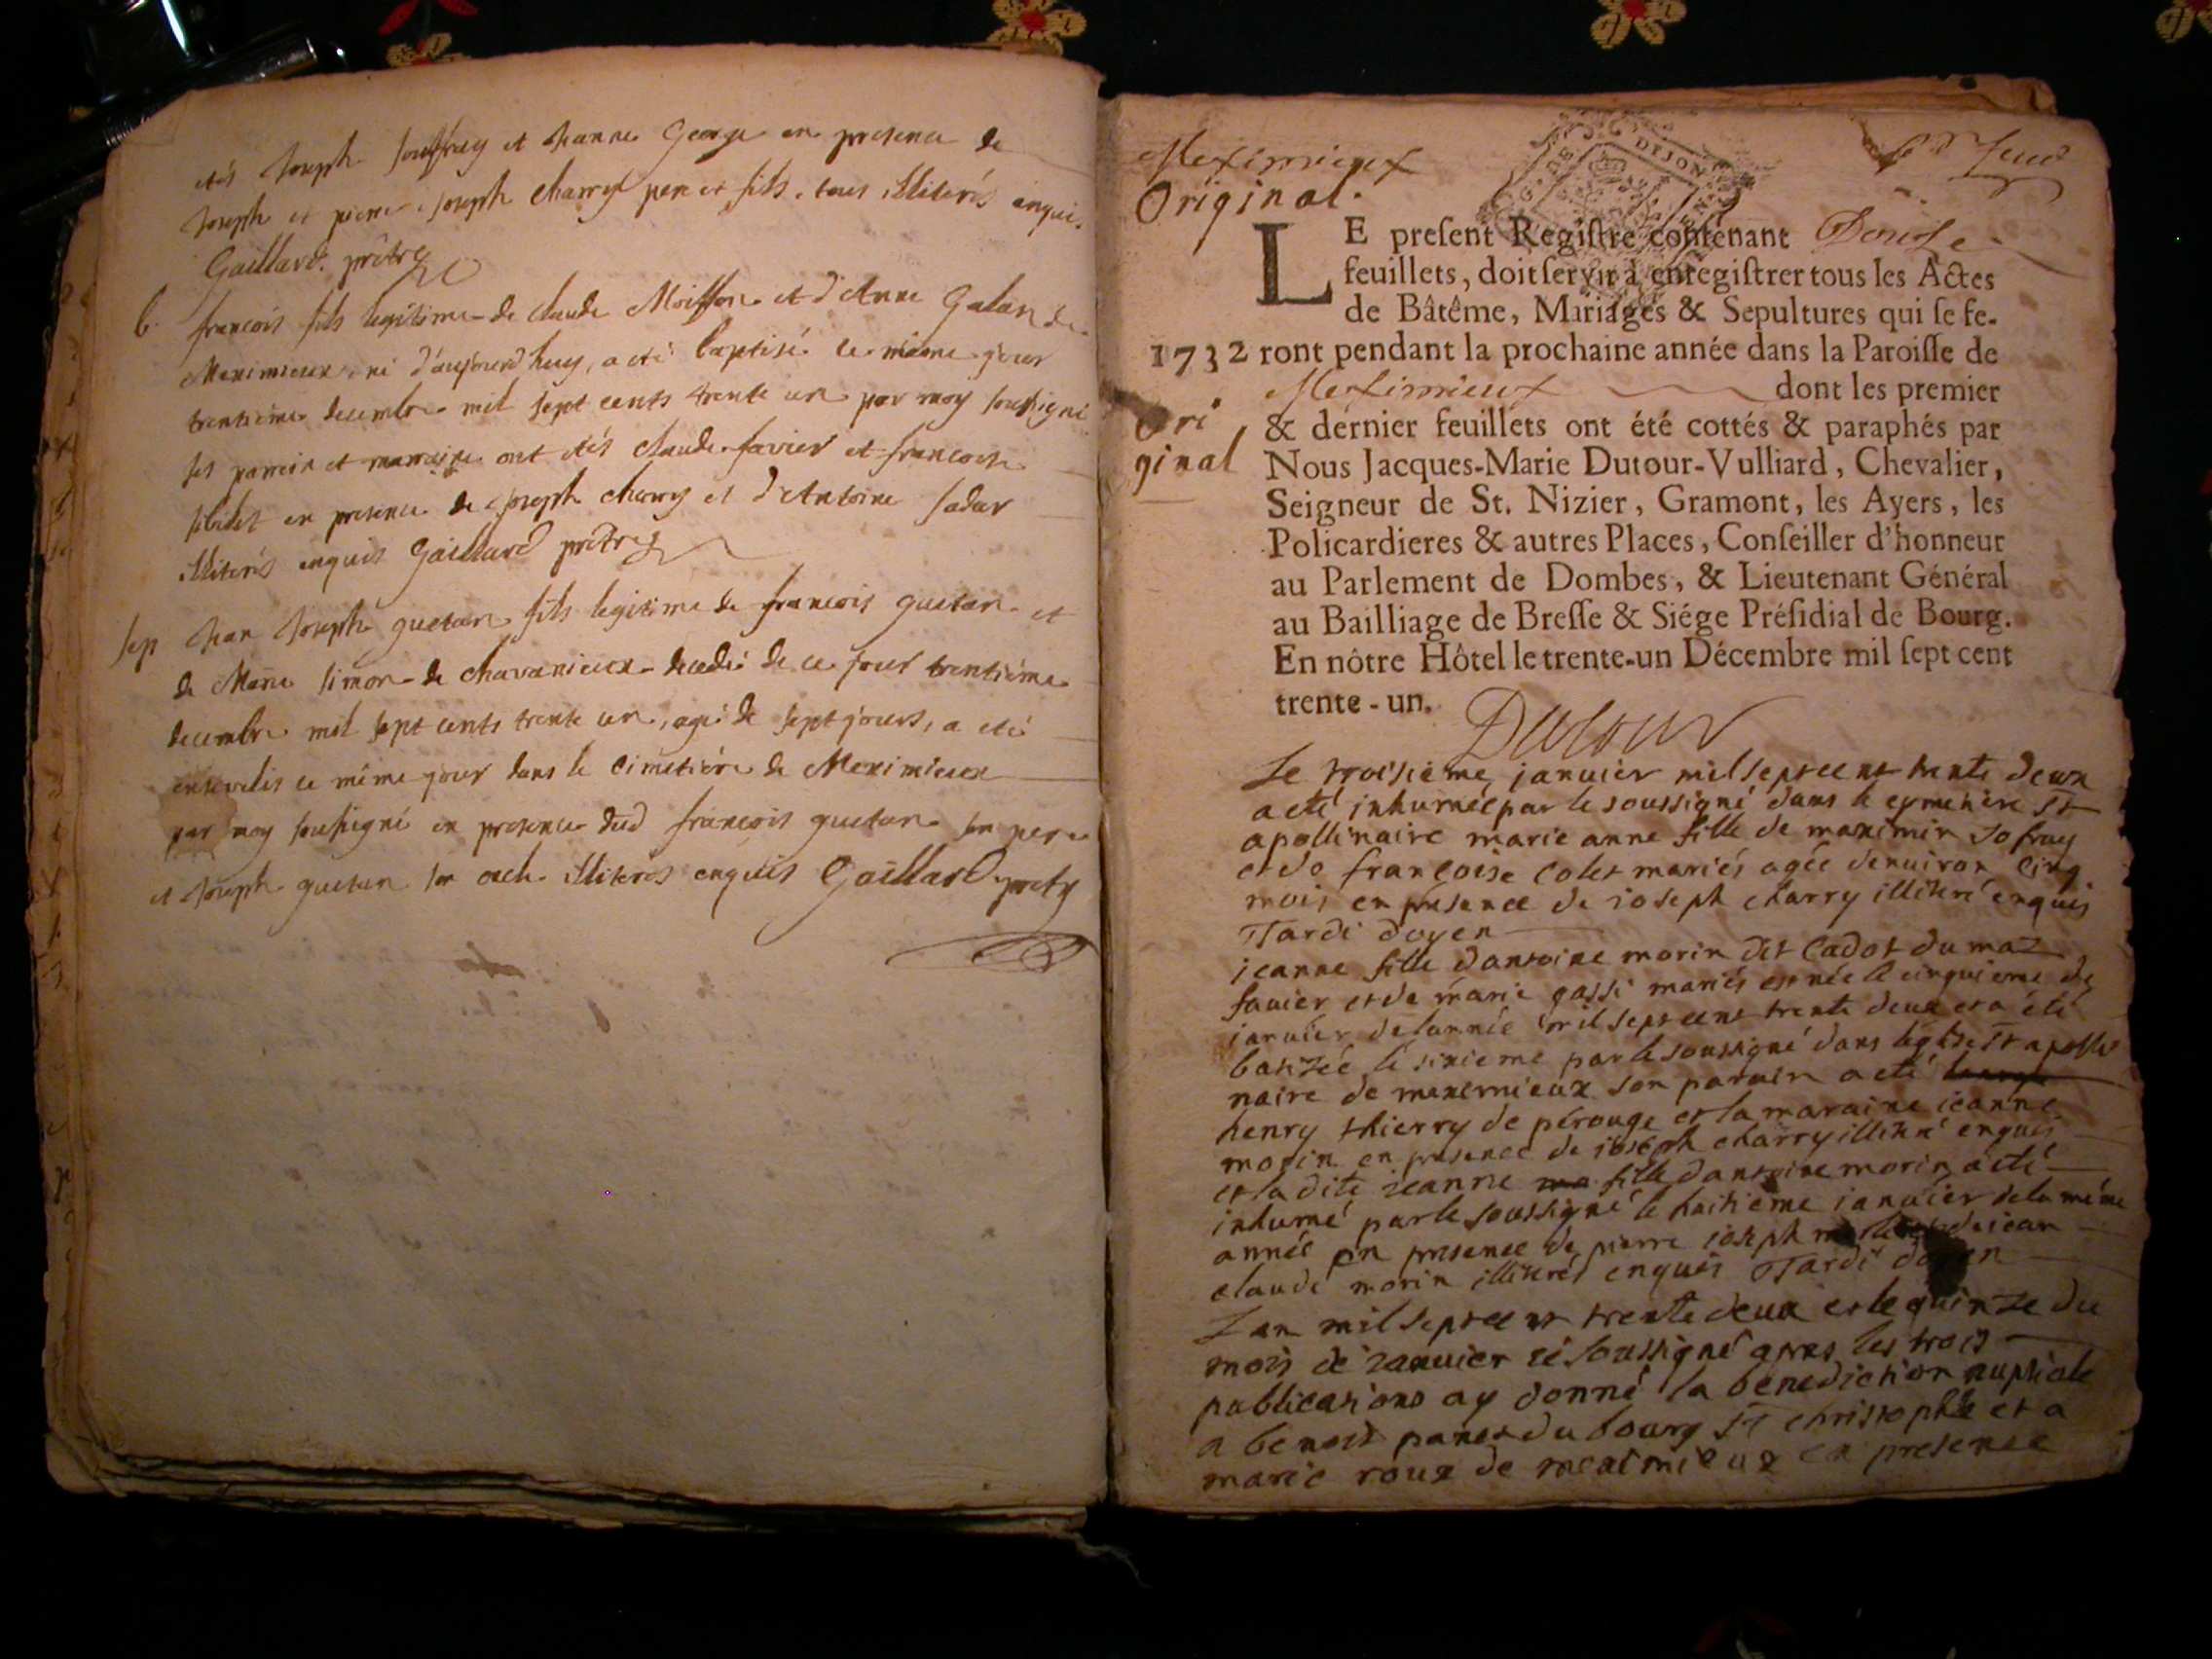 etés Joseph Jouffrey et Jeanne George en presence de
Joseph et pierre Joseph Charry pere et fils, tous illiterés enquis.
Gaillard prêtre
b. francois fils legitime de claude Moisson et d'Anne Galan de
Meximieux né d'aujourd'huy, a eté baptisé le même jour
trentieme decembre mil sept cents trente un par moy soussigné
ses parrein et marraine ont etés claude favier et francoise
en presence de Joseph charry et d'Antoine
illiterés enquis Gaillard prêtre
sep Jean Joseph guetan fils legitime de françois guetan et
de Marie simon de chavanieux decedé de ce jour trentième
decembre mil sept cents trente un, agé de sept jours, a eté
enseveli ce même jour dans le cimetière de Meximieux
par moy soussigné en presence dud françois guetan son pere
et Joseph guetan son oncle illiterés enquis Gaillard
Meximieux
Original.
LE preſent Regiſtre contenant Douze
feuillets, doit ſervir à enregiſtrer tous les Actes
de Bâtême, Mariages & Sepultures qui ſe fe-
1732 ront pendant la prochaine année dans la Paroiſſe de
Meximieux dont les premier
Ori & dernier feuillets ont été cottés & paraphés par
ginal Nous Jacques-Marie Dutour-Vulliard, Chevalier,
Seigneur de St. Nizier, Gramont, les Ayers, les
Policardieres & autres Places, Conſeiller d'honneur
au Parlement de Dombes, & Lieutenant Général
au Bailliage de Breſſe & Siége Préſidial de Bourg.
En nôtre Hôtel le trente-un Décembre mil ſept cent
trente-un.
Dutour
Le troisieme januier mil sept cent trente deux
a eté inhumée par le soussigné dans le cymetiere St
apollinaire marie anne fille de maximin Jofray
et de françoise colet mariés agée denuiron cinq
mois en présence de ioseph charry illitéré enquis
Tardi doyen
jeanne fille dantoine morin dit Cadot du maz
fauier et de marie gassi mariés est née le cinquieme de
januier de lannée mil sept cent trente deux et a été
batizée le sixieme par le soussigné dans léglise St apolli
naire de meximieux son parain a eté
henry thierry de pérouge et la maraine ieanne
morin en presence de ioseph charry illitéré enquis
et la dite ieanne fille dantoine morin a eté
inhumé par le soussigné le huitième ianuier de la même
année en presence de pierre ioseph et de iean
claude morin illitérés enquis Tardi doyen
Lan mil sept cent trente deux et le quinze du
mois de ianuier ié soussigné apres les trois
publications ay donné la benediction nuptiale
a benoit panet du bourg St christophle et a
marie roux de meximieux en presence